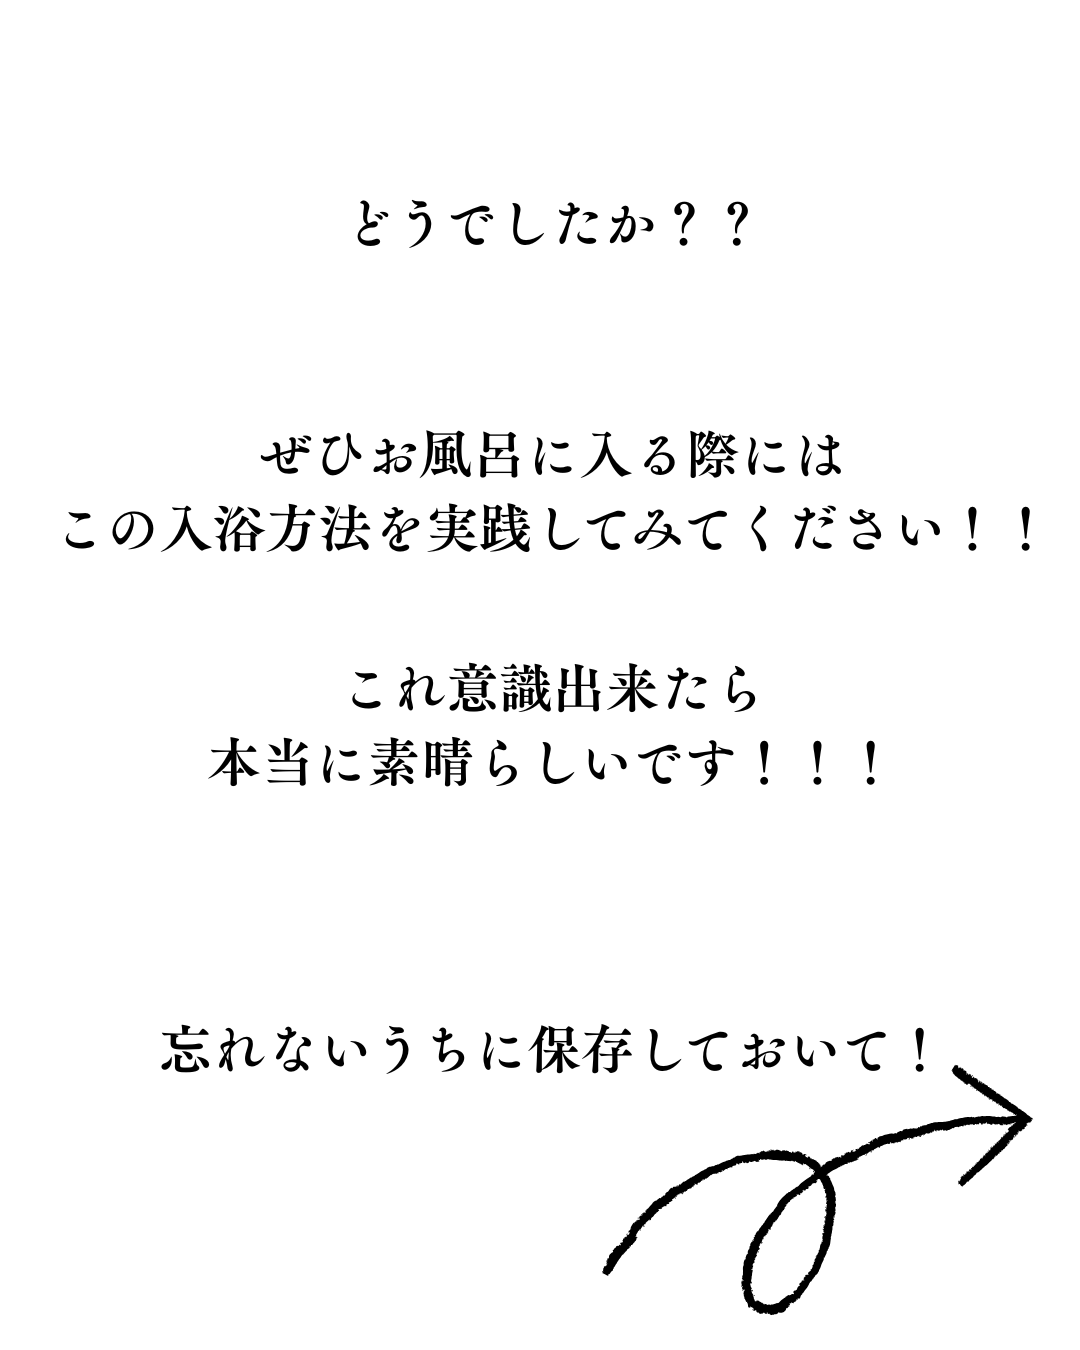 どうでしたか？？
ぜひお風呂に入る際には
この入浴方法を実践してみてください！！
これ意識出来たら
本当に素晴らしいです！！！
忘れないうちに保存しておいて！